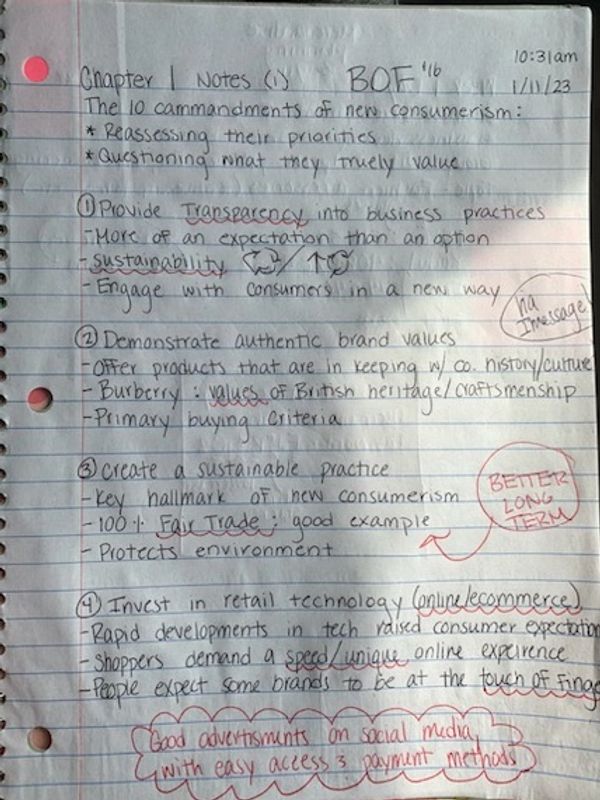 10:31am
Chapter 1 Notes (1) BOF '16 1/11/23
The 10 cammandments of new consumerism:
* Reassessing their priorities
* Questioning what they truely value
① Provide Transparency into business practices
- More of an expectation than an option
- sustainability
- Engage with consumers in a new way
ha
Imessage!
② Demonstrate authentic brand values
- Offer products that are in keeping w/ co. history/culture
- Burberry : values of British heritage/craftsmenship
- Primary buying criteria
③ Create a sustainable practice
- Key hallmark of new consumerism
- 100% Fair Trade : good example
- Protects environment
BETTER
LONG
TERM
④ Invest in retail technology (online/ecommerce)
- Rapid developments in tech raised consumer expectation
- Shoppers demand a speed/unique online expeirence
- People expect some brands to be at the touch of finge
Good advertisments on social media,
with easy access & payment methods